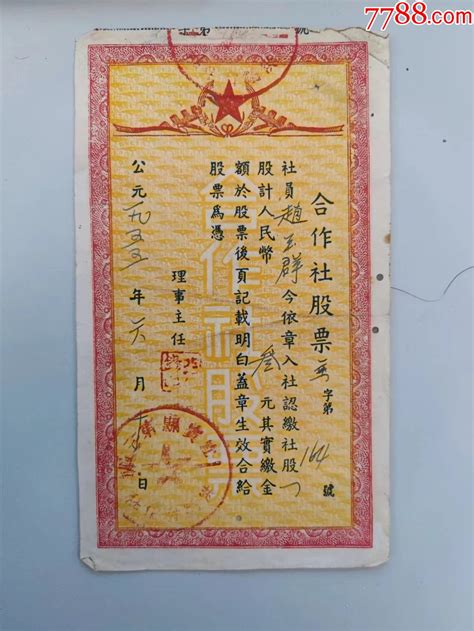 7788.com
合作社股票 字第 164 號
社員趙玉群今依章入社認繳社股一
股計人民幣叁元其實繳金
額於股票後頁記載明白蓋章生效合給
股票爲憑
理事主任
公元一九五五年 六月 日
合作社股票